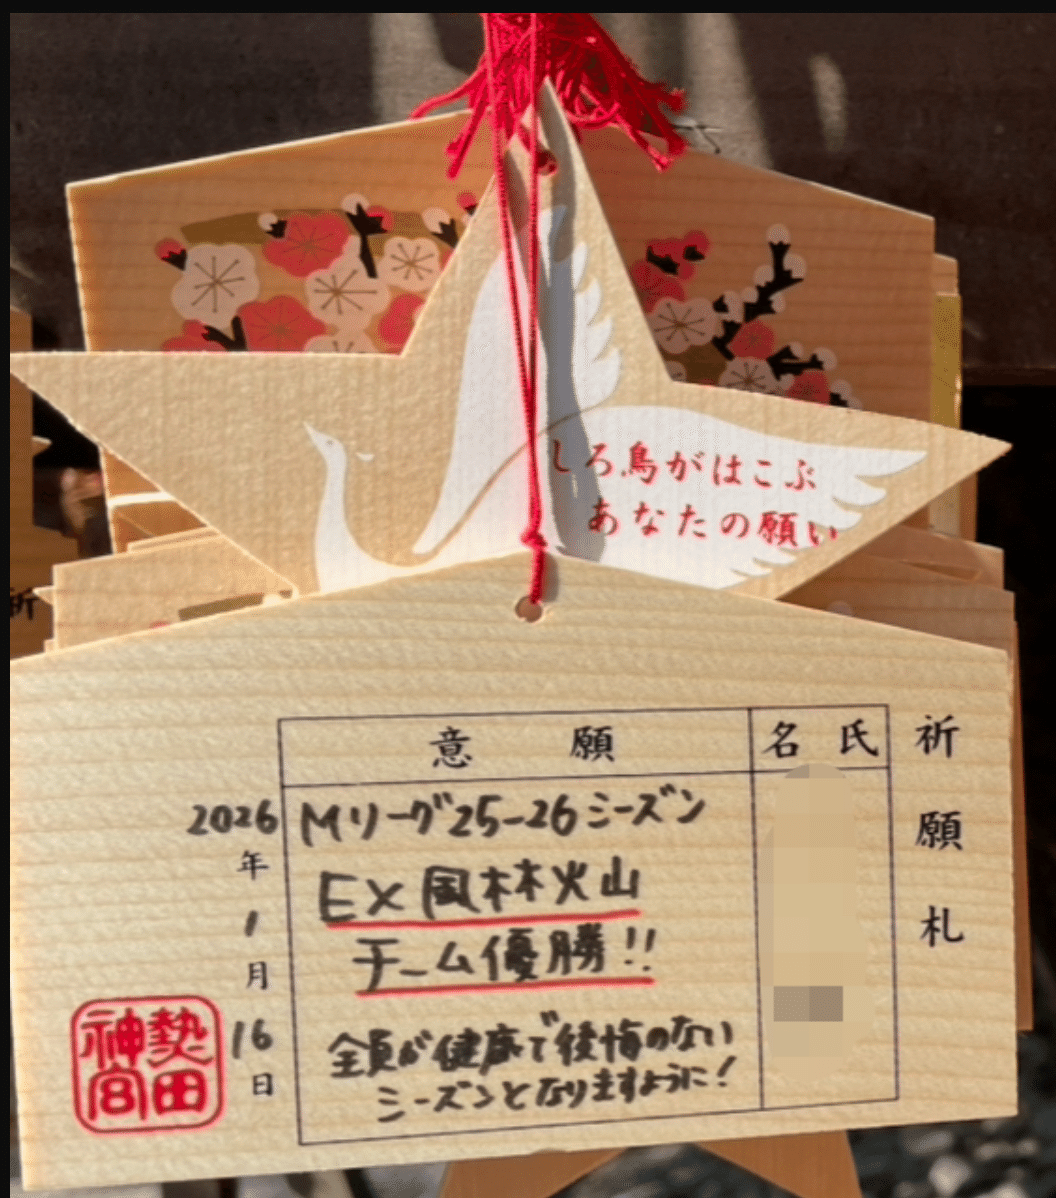 しろ鳥がはこぶ
あなたの願い
祈願札
氏名
願意
Mリーグ25-26シーズン
EX風林火山
チーム優勝!!
全員が健康で後悔のない
シーズンとなりますように!
2026年1月16日
熱田神宮
祈